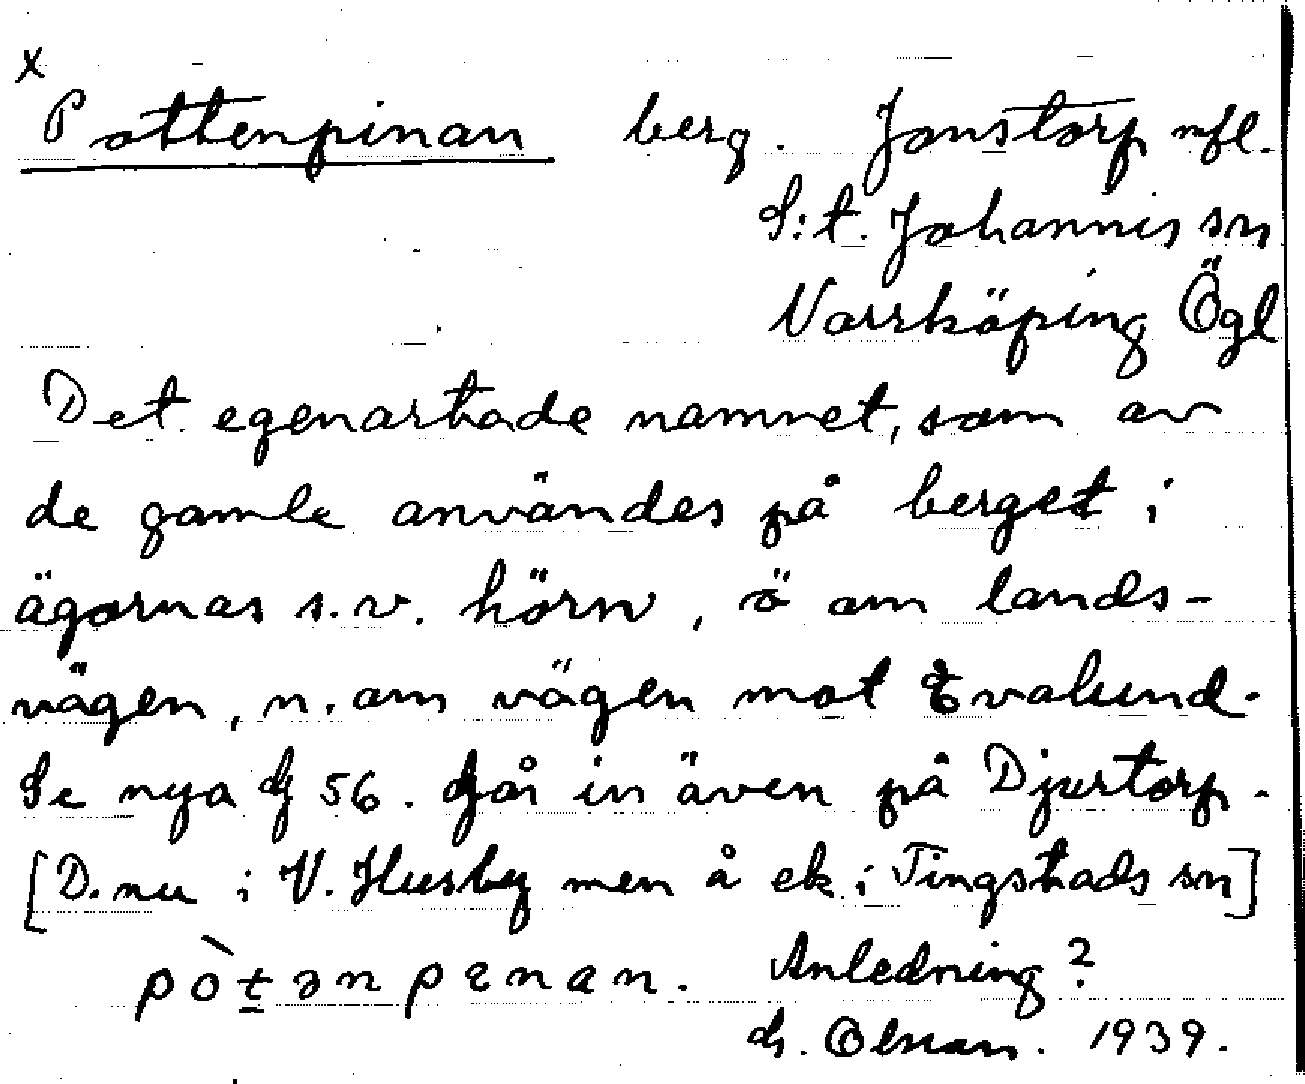 x
Pottenpinan berg. Jonstorp mfl.
S:t. Johannis sn
Norrköping Ögl
Det egenartade namnet, som av
de gamle användes på berget i
ägornas s.v. hörn, ö om lands-
vägen, n. om vägen mot Evalund.
Se nya 56. Går in även på Djurtorp.
[D. nu i V. Husby men å ek. i Tingstads sn]
pòt̲ən pınan. Anledning?
Olson. 1939.